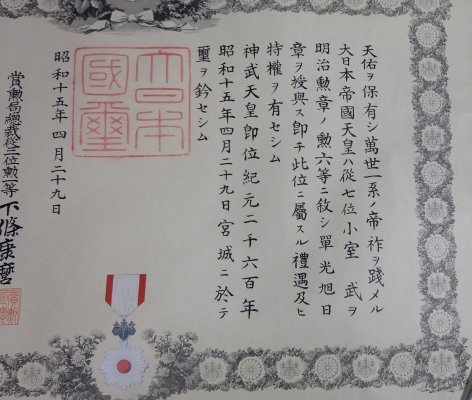 天佑ヲ保有シ萬世一系ノ帝祚ヲ踐メル
大日本帝國天皇ハ從七位小室武ヲ
明治勲章ノ勲六等ニ敘シ單光旭日
章ヲ授與ス即チ此位ニ屬スル禮遇及ヒ
特權ヲ有セシム
神武天皇即位紀元二千六百年
昭和十五年四月二十九日宮城ニ於テ
璽ヲ鈐セシム
大日本
國璽
昭和十五年四月二十九日
賞勲局總裁從三位勲一等下條康麿